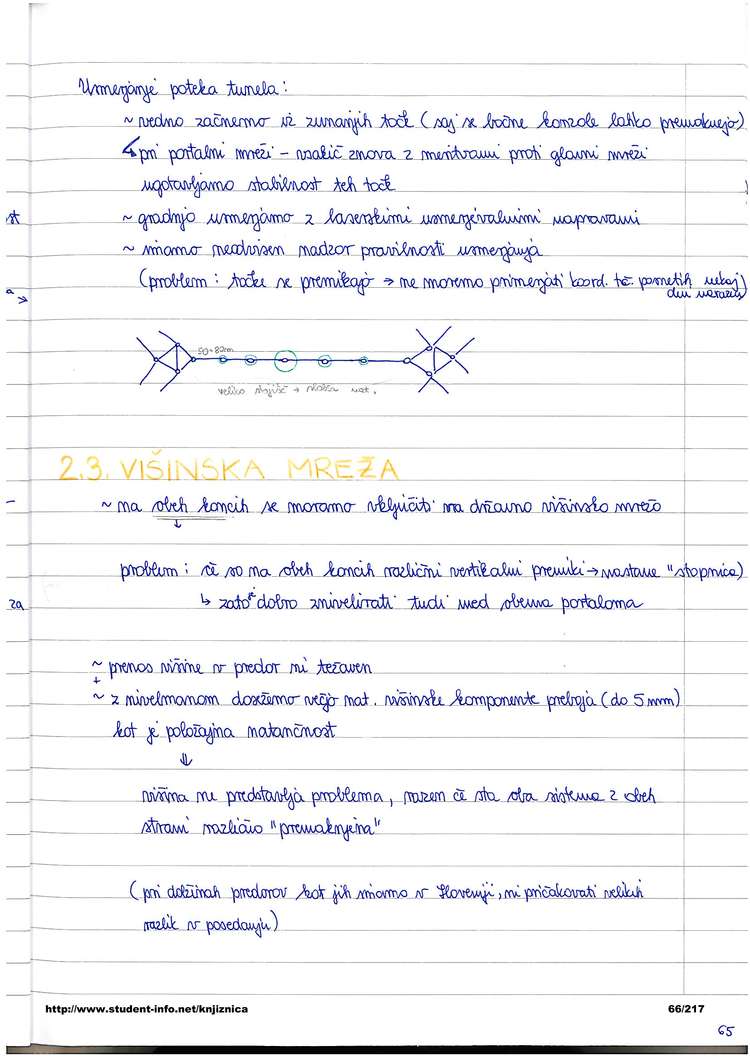 Usmerjanje poteka tunela:
~ vedno začnemo iz zunanjih točk (saj se bočne konzole lahko premaknejo)
↳ pri portalni mreži - vsakič znova z meritvami proti glavni mreži
ugotavljamo stabilnost teh točk
st
~ gradnjo usmerjamo z laserskimi usmerjevalnimi napravami
~ imamo neodvisen nadzor pravilnosti usmerjanja
(problem: točke se premikajo → ne moremo primerjati koord. tč. posnetih nekaj
dni narazen)
a →
50-80m
veliko stojišč → slabša nat.
2.3. VIŠINSKA MREŽA
~ na obeh koncih se moramo vključiti na državno višinsko mrežo
problem: če so na obeh koncih različni vertikalni premiki → nastane "stopnica)
za
↳ zato je dobro znivelirati tudi med obema portaloma
~ prenos višine v predor ni težaven
+
~ z nivelmanom dosežemo večjo nat. višinske komponente preboja (do 5 mm)
kot je položajna natančnost
⇓
višina ne predstavlja problema, razen če sta oba sistema z obeh
strani različno "premaknjena"
(pri dolžinah predorov kot jih imamo v Sloveniji, ni pričakovati velikih
razlik v posedanju)
http://www.student-info.net/knjiznica
66/217
65